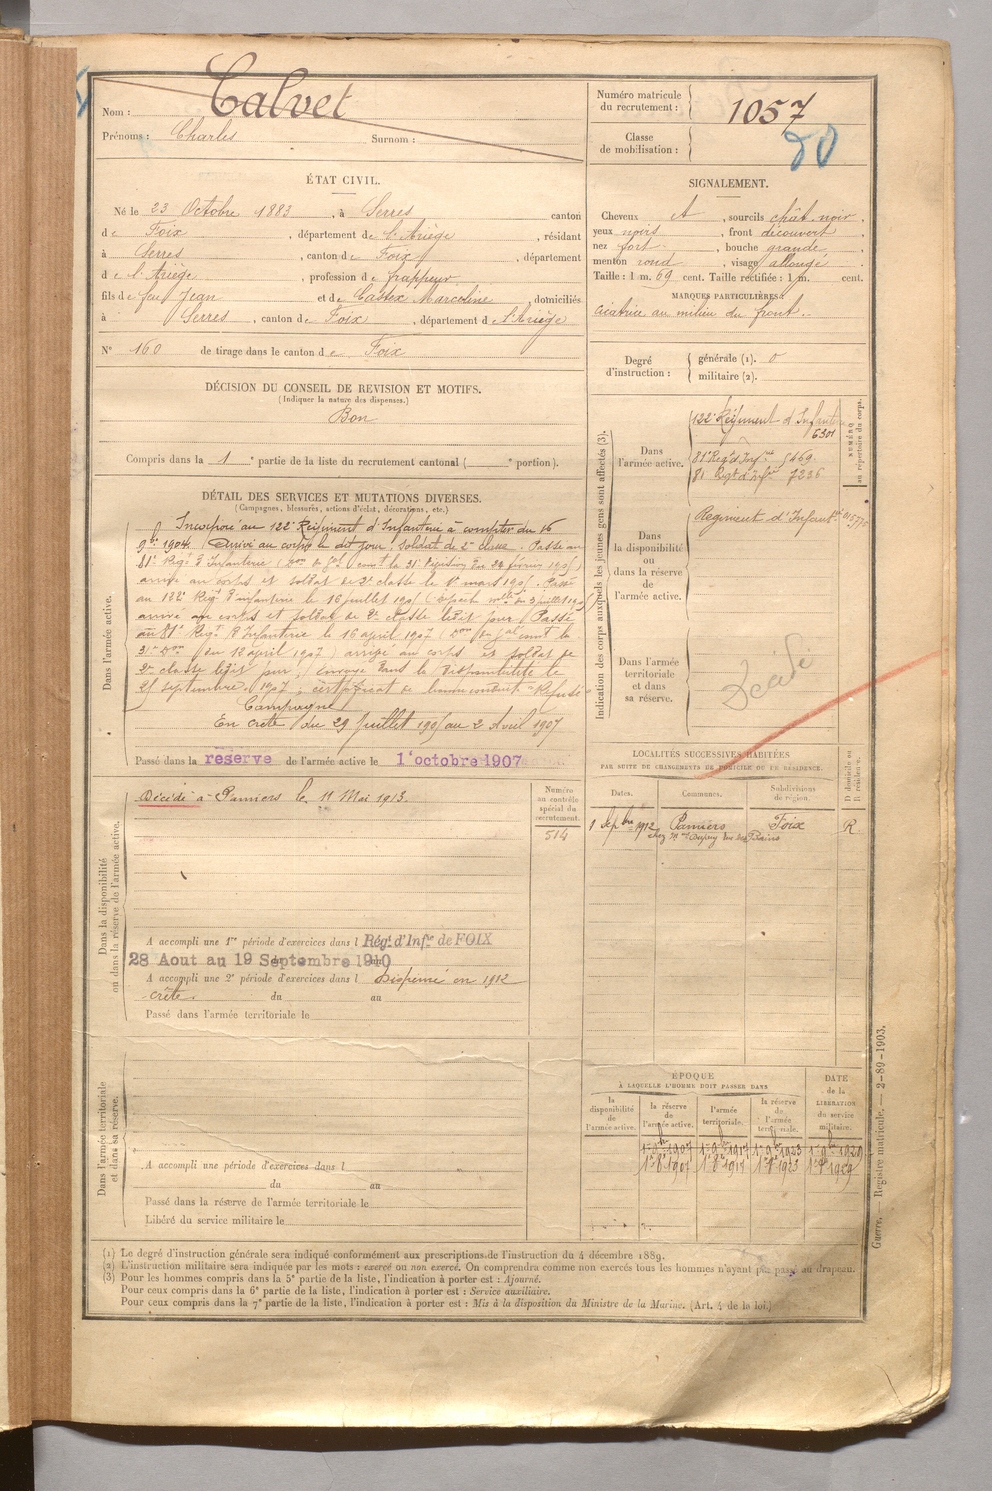 Nom : Calvet
Prénoms : Charles Surnom :
Numéro matricule du recrutement : 1057
Classe de mobilisation :
ÉTAT CIVIL.
Né le 23 Octobre 1883, à Serres canton
de Foix, département de l'Ariège, résidant
à Serres, canton de Foix, département
de l'Ariège, profession de frappeur
fils de feu Jean et de Castex Marceline, domiciliés
à Serres, canton de Foix, département d l'Ariège
N° 160 de tirage dans le canton de Foix
SIGNALEMENT.
Cheveux et, sourcils chât. noir
yeux noirs, front découvert
nez fort, bouche grande
menton rond, visage allongé
Taille : 1 m. 69 cent. Taille rectifiée : 1 m. cent.
MARQUES PARTICULIÈRES :
cicatrice au milieu du front.
Degré d'instruction : générale (1). 0
militaire (2).
DÉCISION DU CONSEIL DE REVISION ET MOTIFS.
(Indiquer la nature des dispenses.)
Bon
Compris dans la 1e partie de la liste du recrutement cantonal ( e portion).
DÉTAIL DES SERVICES ET MUTATIONS DIVERSES.
(Campagnes, blessures, actions d'éclat, décorations, etc.)
Dans l'armée active.
Incorporé au 122e Régiment d'Infanterie à compter du 16
9bre 1904. Arrivé au corps le dit jour, soldat de 2e classe. Passé au
81e Régt d'Infanterie 24 février 1905)
arrivé au corps et soldat de 2e classe le 1er mars 1905. Passé
au 122e Régt d'infanterie le 16 juillet 1905 (dépech mlle du 3 juillet 1905
arrivé au corps et soldat de 2e classe ledit jour. Passé
au 81e Régt d'Infanterie le 16 april 1907
du 12 april 1907) arrivé au corps et soldat de
2e classe ledit jour, envoyé dans la disponibilité le
25 septembre 1907, certificat de bonne conduite "Refusé"
Campagne
En crète du 29 juillet 1905 au 2 Avril 1907
Passé dans la réserve de l'armée active le 1er octobre 1907
Indication des corps auxquels les jeunes gens sont affectés (3).
NUMÉRO au répertoire du corps.
Dans l'armée active.
122e Régiment d'Infanterie
6301
81e Régt d'Infrie 5469
81 Régt d'Infie 7236
Dans la disponibilité ou dans la réserve de l'armée active.
Régiment d'Infanterie
Dans l'armée territoriale et dans sa réserve.
Décédé
Dans la disponibilité ou dans la réserve de l'armée active.
Décédé à Pamiers le 11 Mai 1913.
Numéro au contrôle spécial du recrutement.
514
A accompli une 1re période d'exercices dans l Régt d'Infie de FOIX
28 Aout au 19 Septembre 1910
A accompli une 2e période d'exercices dans l Dispensé en 1912
crète du au
Passé dans l'armée territoriale le
LOCALITÉS SUCCESSIVES HABITÉES
PAR SUITE DE CHANGEMENTS DE DOMICILE OU DE RÉSIDENCE.
Dates. Communes. Subdivisions de région. D domicile ou R résidence.
1 Sepbre 1912 Pamiers Foix R.
chez Mme Dupuy rue des Bains
Dans l'armée territoriale et dans sa réserve.
A accompli une période d'exercices dans l
du au
Passé dans la réserve de l'armée territoriale le
Libéré du service militaire le
ÉPOQUE
À LAQUELLE L'HOMME DOIT PASSER DANS
la disponibilité de l'armée active. la réserve de l'armée active. l'armée territoriale. la réserve de l'armée territoriale. DATE de la LIBÉRATION du service militaire.
1er 9bre 1907 1er 9bre 1917 1er 9bre 1923 1er 9bre 1929
1er 8bre 1907 1er 8bre 1917 1er 8bre 1923 1er 8bre 1929
(1) Le degré d'instruction générale sera indiqué conformément aux prescriptions de l'instruction du 4 décembre 1889.
(2) L'instruction militaire sera indiquée par les mots : exercé ou non exercé. On comprendra comme non exercés tous les hommes n'ayant pas passé au drapeau.
(3) Pour les hommes compris dans la 5e partie de la liste, l'indication à porter est : Ajourné.
Pour ceux compris dans la 6e partie de la liste, l'indication à porter est : Service auxiliaire.
Pour ceux compris dans la 7e partie de la liste, l'indication à porter est : Mis à la disposition du Ministre de la Marine. (Art. 4 de la loi.)
Guerre. — Registre matricule. — 2-89-1903.